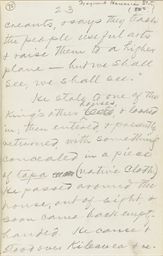 23
creants, & says they teach
the people useful arts
& raise them to a higher
plane — but we shall
see, we shall see.
He stole to one of the
king's other houses & looked
in, then entered & presently
returned with something
concealed in a piece
of tapa (native cloth)
He passed around the
house, out of sight, &
soon came back empty-
handed. He came &
stood over Kilauea & re-